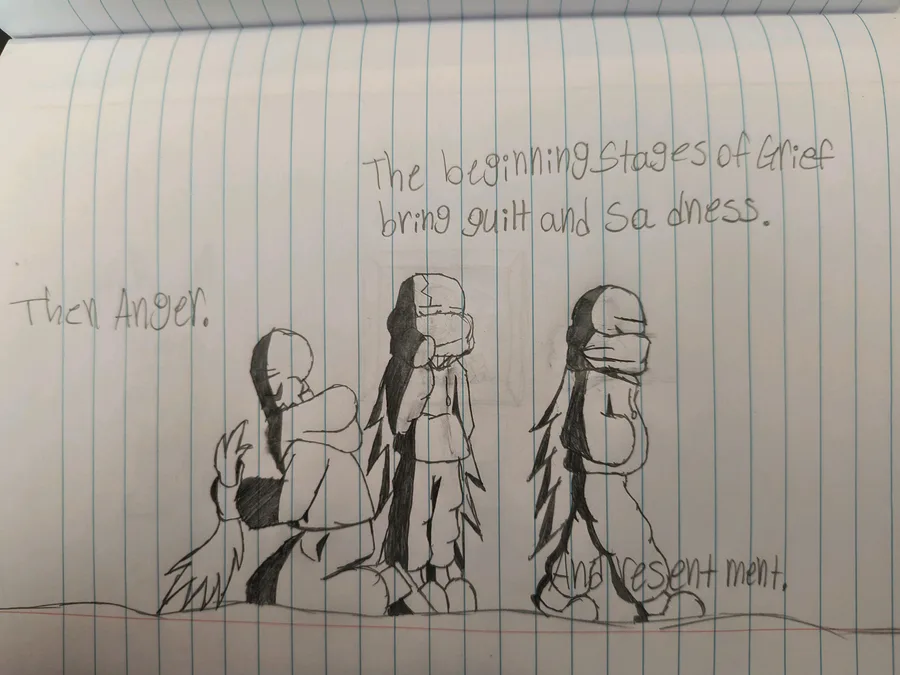 The beginning stages of Grief
bring guilt and sadness.
Then Anger.
And resentment.